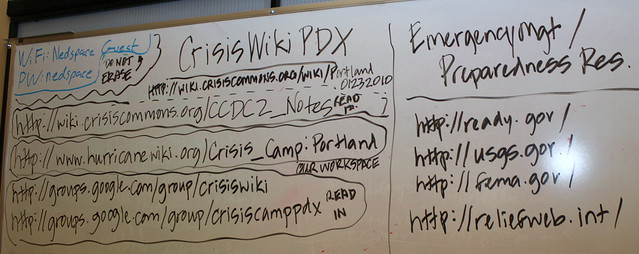 WiFi: Nedspace Guest
PW: nedspace
DO NOT
ERASE
CRISISWIKIPDX
HTTP://WIKI.CRISISCOMMONS.ORG/WIKI/Portland
01232010
http://wiki.crisiscommons.org/CCDC2_Notes
READ
http://www.hurricanewiki.org/Crisis_Camp:Portland
OUR WORKSPACE
http://groups.google.com/group/crisiswiki
http://groups.google.com/group/crisiscamppdx
READ
IN
EmergencyMgt/
Preparedness Res.
http://ready.gov/
http://usgs.gov/
http://fema.gov/
http://reliefweb.int/